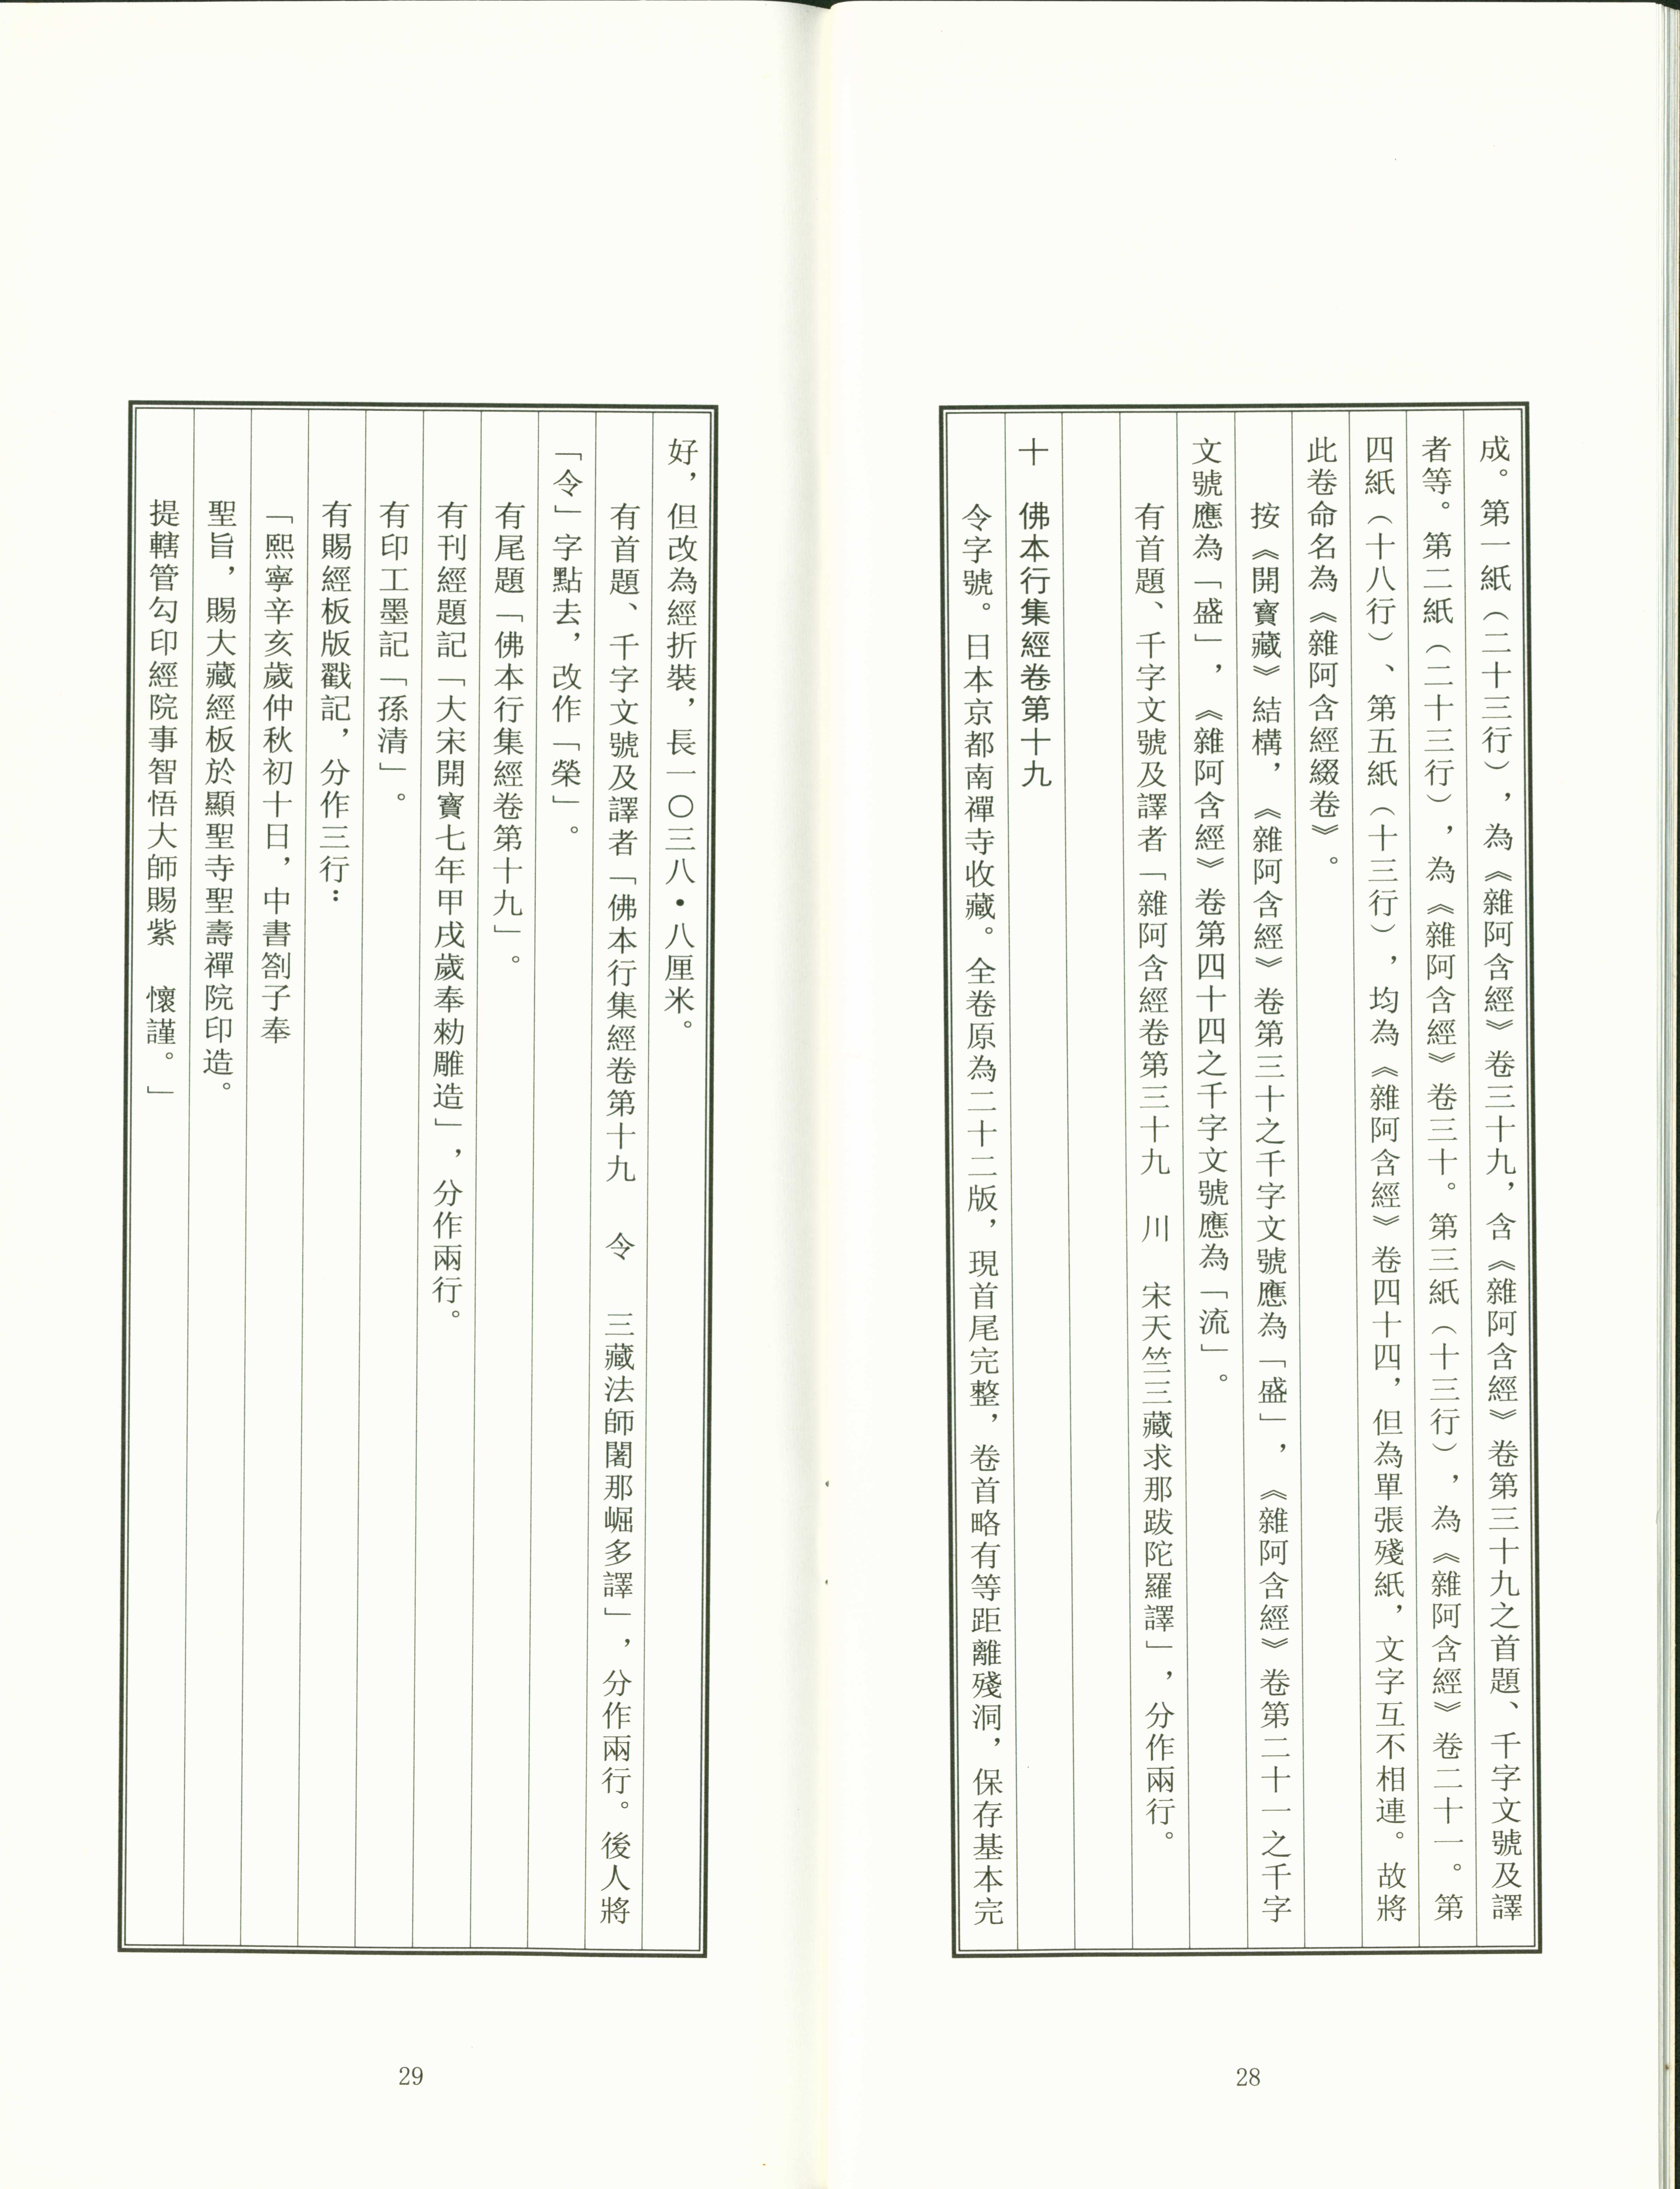 成。第一紙（二十三行），為《雜阿含經》卷三十九，含《雜阿含經》卷第三十九之首題、千字文號及譯
者等。第二紙（二十三行），為《雜阿含經》卷三十。第三紙（十三行），為《雜阿含經》卷二十一。第
四紙（十八行）、第五紙（十三行），均為《雜阿含經》卷四十四，但為單張殘紙，文字互不相連。故將
此卷命名為《雜阿含經綴卷》。
按《開寶藏》結構，《雜阿含經》卷第三十之千字文號應為「盛」，《雜阿含經》卷第二十一之千字
文號應為「盛」，《雜阿含經》卷第四十四之千字文號應為「流」。
有首題、千字文號及譯者「雜阿含經卷第三十九　川　宋天竺三藏求那跋陀羅譯」，分作兩行。
十　佛本行集經卷第十九
令字號。日本京都南禪寺收藏。全卷原為二十二版，現首尾完整，卷首略有等距離殘洞，保存基本完
28
好，但改為經折裝，長一〇三八·八厘米。
有首題、千字文號及譯者「佛本行集經卷第十九　令　三藏法師闍那崛多譯」，分作兩行。後人將
「令」字點去，改作「榮」。
有尾題「佛本行集經卷第十九」。
有刊經題記「大宋開寶七年甲戌歲奉勑雕造」，分作兩行。
有印工墨記「孫清」。
有賜經板版戳記，分作三行：
「熙寧辛亥歲仲秋初十日，中書劄子奉
聖旨，賜大藏經板於顯聖寺聖壽禪院印造。
提轄管勾印經院事智悟大師賜紫　懷謹。」
29